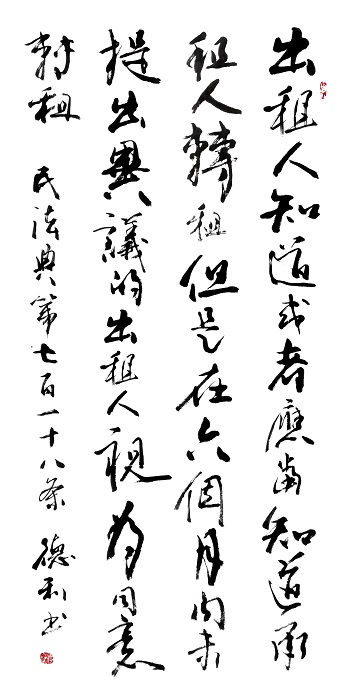 出租人知道或者應當知道承
租人轉租但是在六個月内未
提出異議的出租人視为同意
轉租 民法典第七百一十八条 德利书